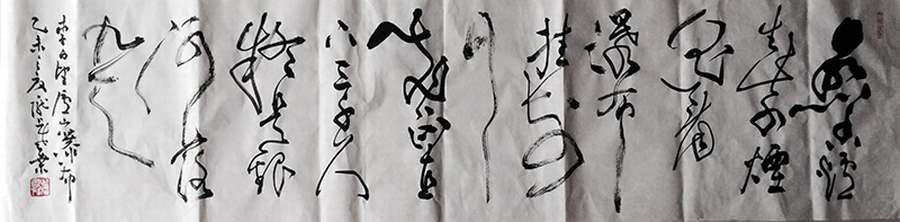 日照香爐
生紫煙
遥看
瀑布
挂前
川
飛流直
下三千尺
疑是銀
河落
九天
李白望廬山瀑布
乙未之夏